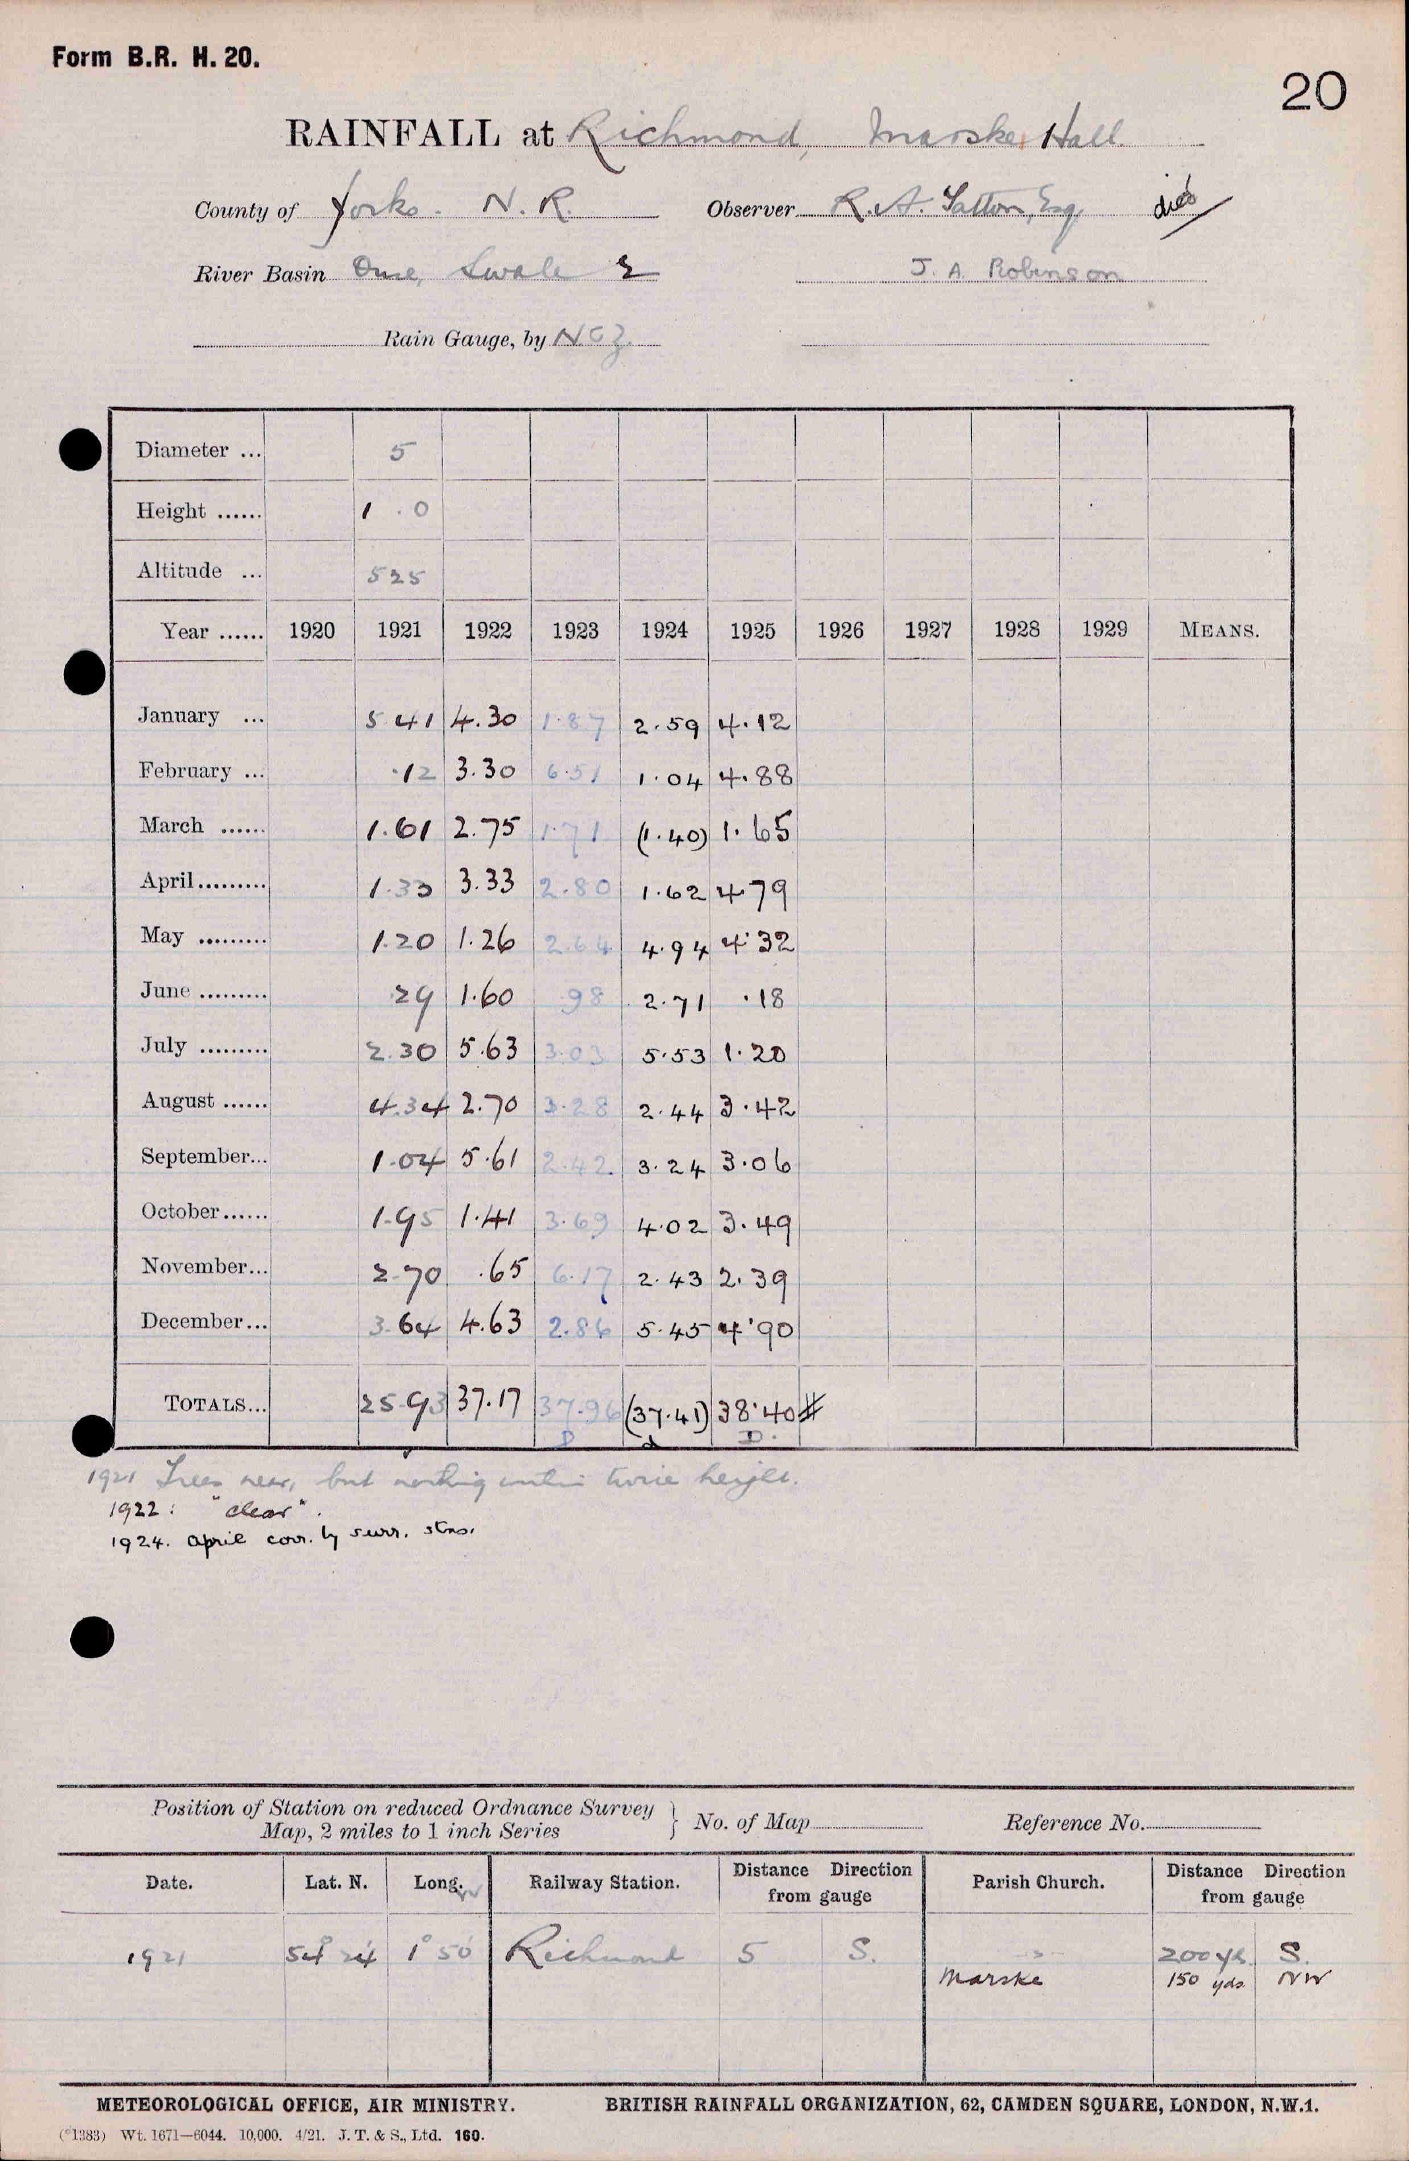 Form B.R. H. 20.
20
RAINFALL at Richmond, Marske Hall.
County of Yorks. N. R. Observer R. A. Tatton, Esq. died
River Basin Ouse, Swale J. A. Robinson
Rain Gauge, by N & Z.
Diameter ... 5
Height ...... 1 . 0
Altitude ... 525
Year ...... 1920 1921 1922 1923 1924 1925 1926 1927 1928 1929 MEANS.
January ... 5.41 4.30 1.87 2.59 4.12
February ... .12 3.30 6.51 1.04 4.88
March ...... 1.61 2.75 1.71 (1.40) 1.65
April......... 1.33 3.33 2.80 1.62 4.79
May ......... 1.20 1.26 2.64 4.94 4.32
June ......... .29 1.60 .98 2.71 .18
July ......... 2.30 5.63 3.03 5.53 1.20
August ...... 4.34 2.70 3.28 2.44 3.42
September... 1.04 5.61 2.42 3.24 3.06
October...... 1.95 1.41 3.69 4.02 3.49
November... 2.70 .65 6.17 2.43 2.39
December... 3.64 4.63 2.86 5.45 4.90
TOTALS... 25.93 37.17 37.96 (37.41) 38.40 #
D D.
1921 Trees near, but nothing within twice height.
1922 : "clear".
1924. april corr. by surr. stns.
Position of Station on reduced Ordnance Survey } No. of Map Reference No.
Map, 2 miles to 1 inch Series
Date. Lat. N. Long. W Railway Station. Distance Direction from gauge Parish Church. Distance Direction from gauge
1921 54° 24 1° 50' Richmond 5 S. 200 yds. S.
Marske 150 yds. NW
METEOROLOGICAL OFFICE, AIR MINISTRY. BRITISH RAINFALL ORGANIZATION, 62, CAMDEN SQUARE, LONDON, N.W.1.
(*1383) Wt. 1671—6044. 10,000. 4/21. J. T. & S., Ltd. 160.